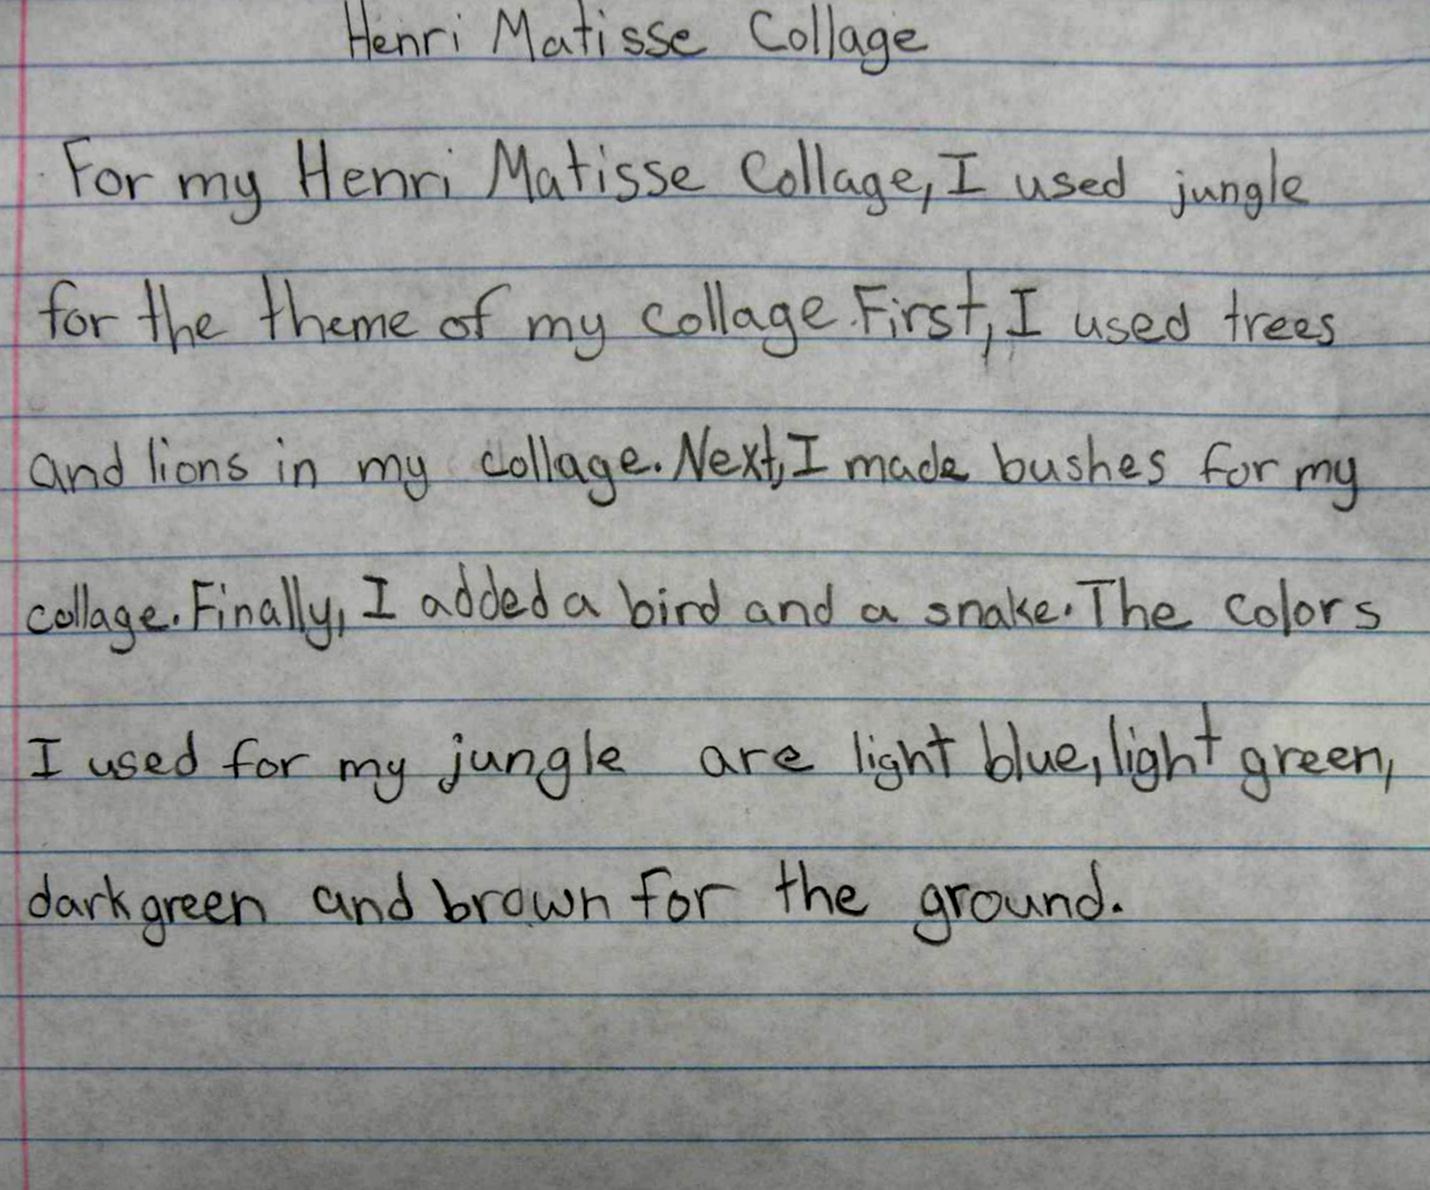 Henri Matisse Collage
For my Henri Matisse Collage, I used jungle
for the theme of my collage. First, I used trees
and lions in my collage. Next, I made bushes for my
collage. Finally, I added a bird and a snake. The colors
I used for my jungle are light blue, light green,
dark green and brown for the ground.